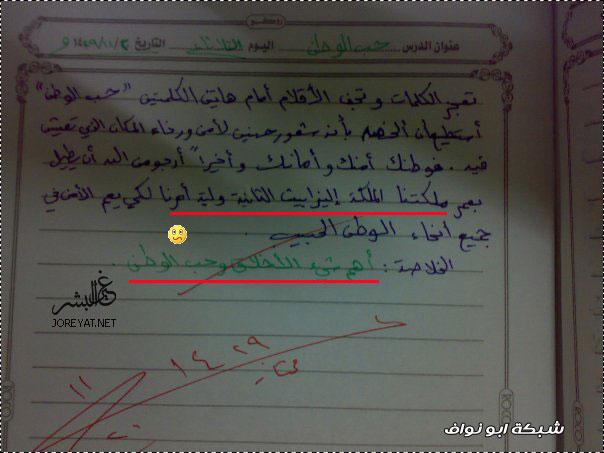 عنوان الدرس حب الوطن اليوم الثلاثاء التاريخ ١٤٢٩/١١/٢ هـ
تعجز الكلمات وتجف الأقلام أمام هاتين الكلمتين "حب الوطن"
أستطيع أن ألخصه بأنه شعور حسين لأمن ورخاء المكان الذي تعيش
فيه. فوطنك أمنك وأمانك وأخيراً أرجو من الله أن يطيل
بعمر ملكتنا الملكة إليزابيث الثانية ولية أمرنا لكي يعم الأمن في
جميع أنحاء الوطن الحبيب.
الخلاصة: أهم شيء الأخلاق وحب الوطن.
غي البشر
JOREYAT.NET
ممتاز
١٤٢٩
١١
شبكة ابو نواف